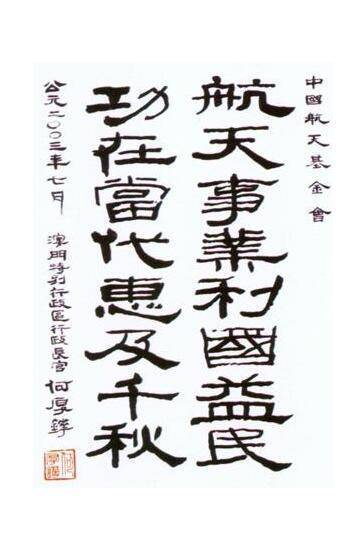 中國航天基金會
航天事業利國益民
功在當代惠及千秋
公元二〇〇三年七月
澳門特別行政區行政長官 何厚鏵